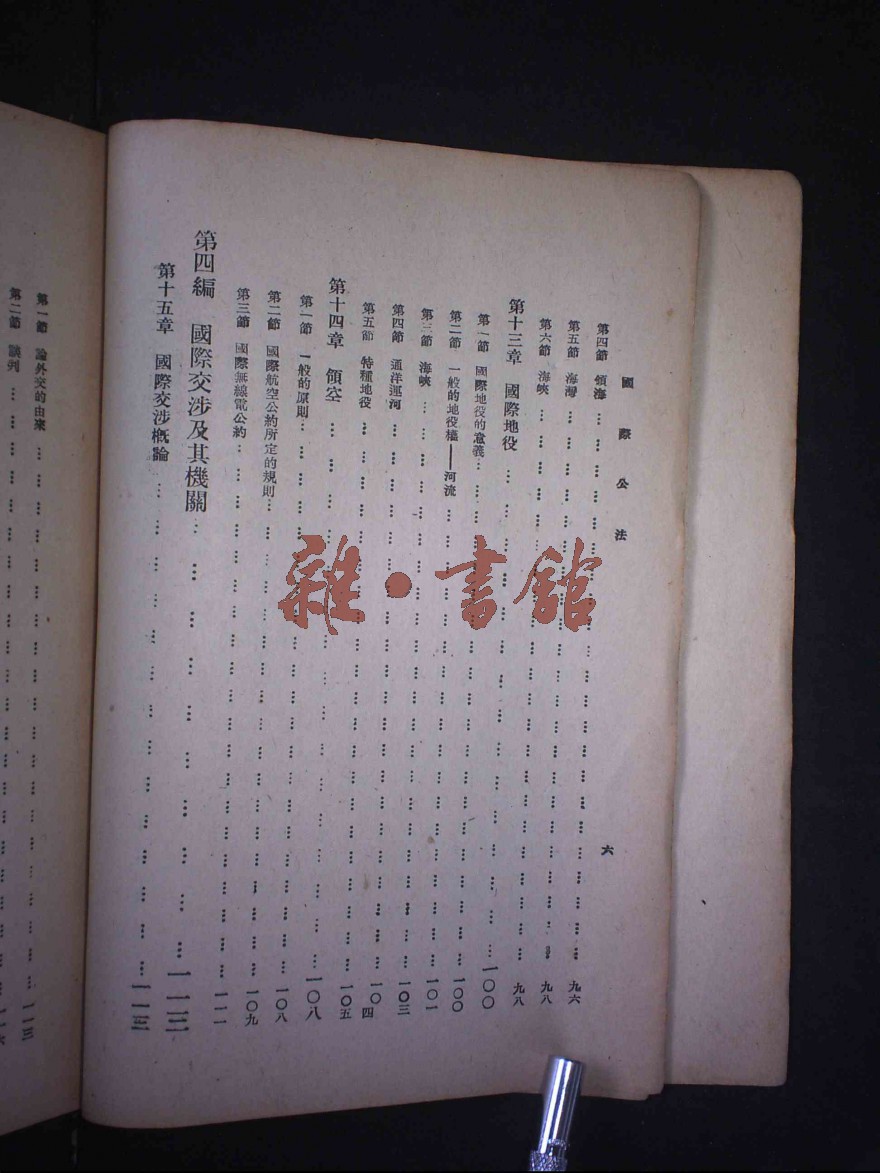 國際公法 六
第四節 領海……九六
第五節 海灣……九八
第六節 海峽……九八
第十三章 國際地役……一〇〇
第一節 國際地役的意義……一〇〇
第二節 一般的地役權——河流……一〇一
第三節 海峽……一〇三
第四節 通洋運河……一〇四
第五節 特種地役……一〇五
第十四章 領空……一〇八
第一節 一般的原則……一〇八
第二節 國際航空公約所定的規則……一〇九
第三節 國際無線電公約……一一一
第四編 國際交涉及其機關……一一三
第十五章 國際交涉概論……一一三
第一節 論外交的由來……一一三
第二節 談判……一一六
雜·書館